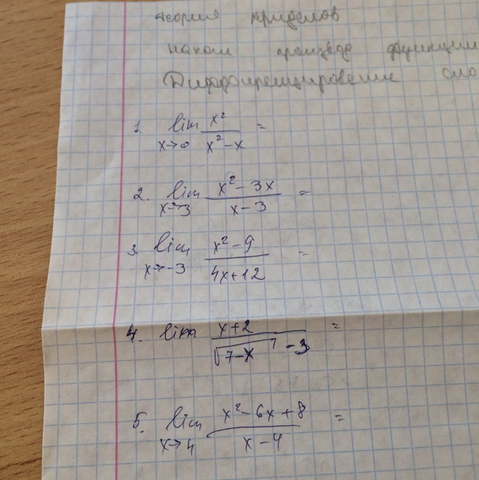 теория приделов
наком произвд функции
Диффиренцирование сло
1. lim x→∞ x²/(x²-x) =
2. lim x→3 (x²-3x)/(x-3) =
3. lim x→-3 (x²-9)/(4x+12) =
4. lim (x+2)/(√(7-x) -3) =
5. lim x→4 (x²-6x+8)/(x-4) =